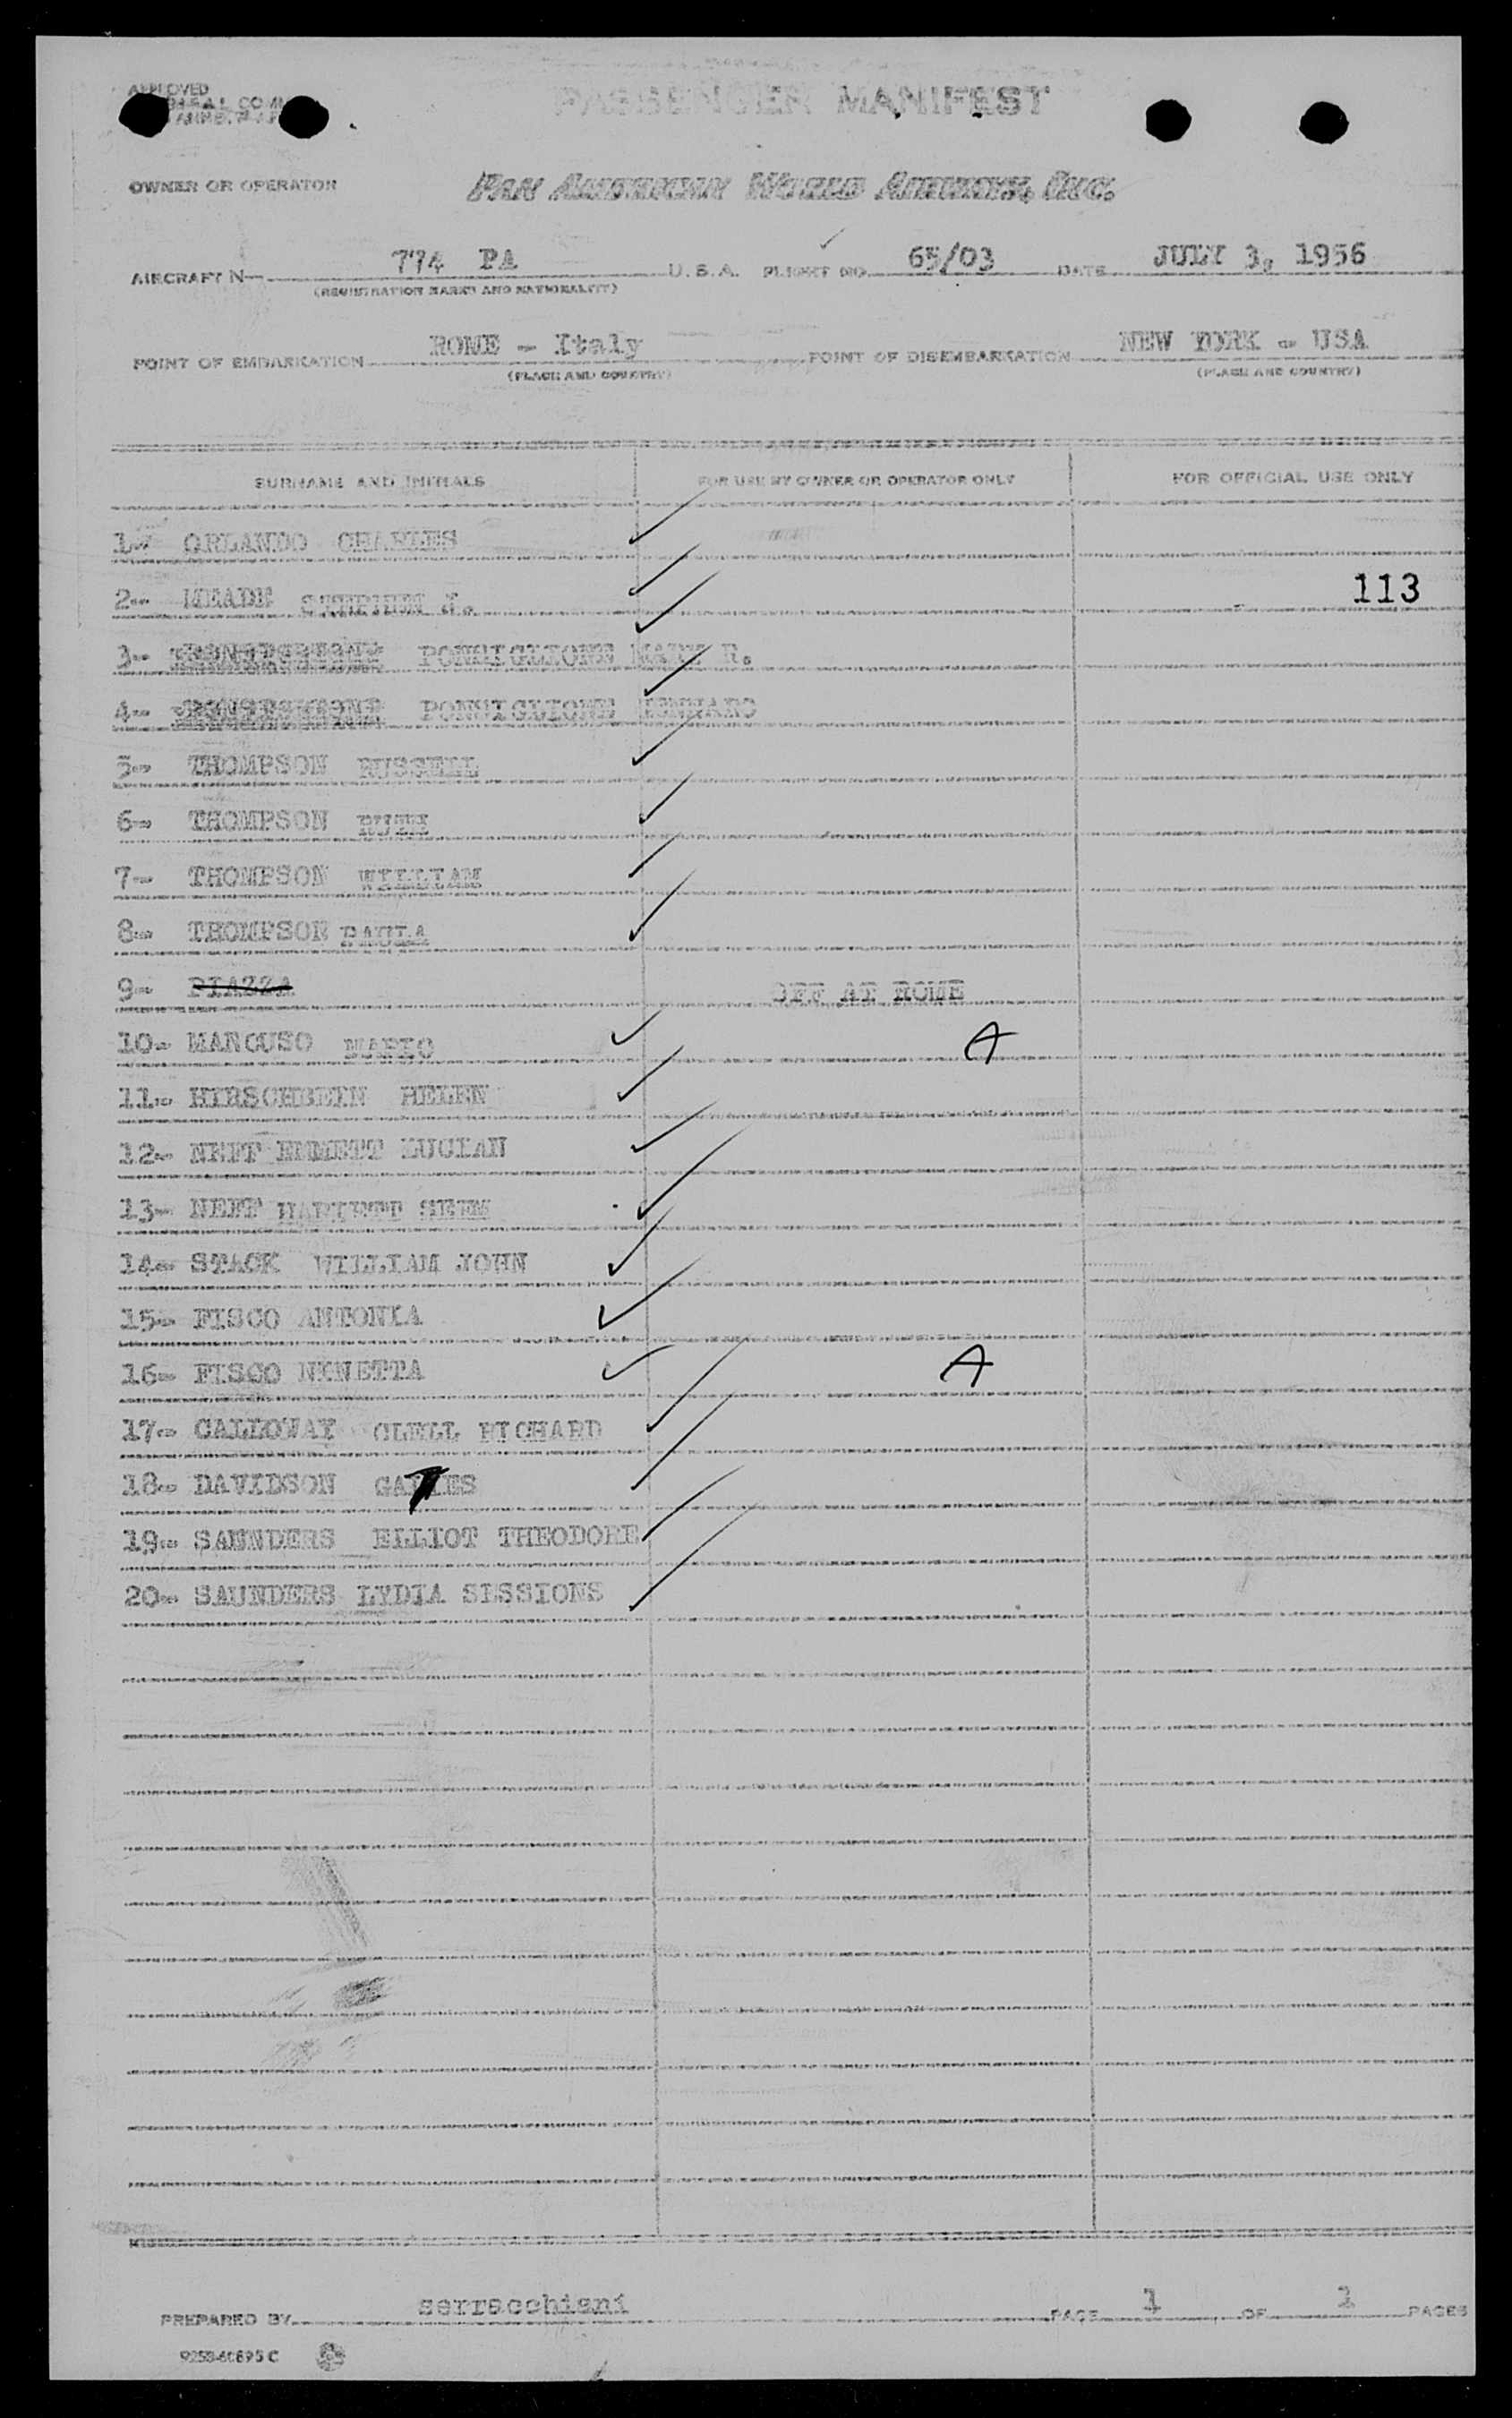 APPROVED
PASSENGER MANIFEST
OWNER OR OPERATOR PAN AMERICAN WORLD AIRWAYS, INC.
AIRCRAFT N— 774 PA U.S.A. FLIGHT NO. 65/03 DATE JULY 3, 1956
(REGISTRATION MARKS AND NATIONALITY)
POINT OF EMBARKATION ROME - Italy POINT OF DISEMBARKATION NEW YORK - USA
(PLACE AND COUNTRY) (PLACE AND COUNTRY)
SURNAME AND INITIALS FOR USE BY OWNER OR OPERATOR ONLY FOR OFFICIAL USE ONLY
1- ORLANDO CHARLES
2- MEADE STEPHEN J. 113
3- PONTIGLIONE R.
4- PONTIGLIONE
5- THOMPSON RUSSELL
6- THOMPSON RUTH
7- THOMPSON WILLIAM
8- THOMPSON PAULA
9- PIAZZA OFF AT ROME
10- MANCUSO MARIO A
11- HIRSCHBEIN HELEN
12- NEFF EMMETT LUCIAN
13- NEFF HARIETT
14- STACK WILLIAM JOHN
15- FISCO ANTONIA
16- FISCO NINETTA A
17- CALLOWAY CLELL RICHARD
18- DAVIDSON
19- SAUNDERS ELLIOT THEODORE
20- SAUNDERS LYDIA SESSIONS
PREPARED BY serracchiani PAGE 1 OF 1 PAGES